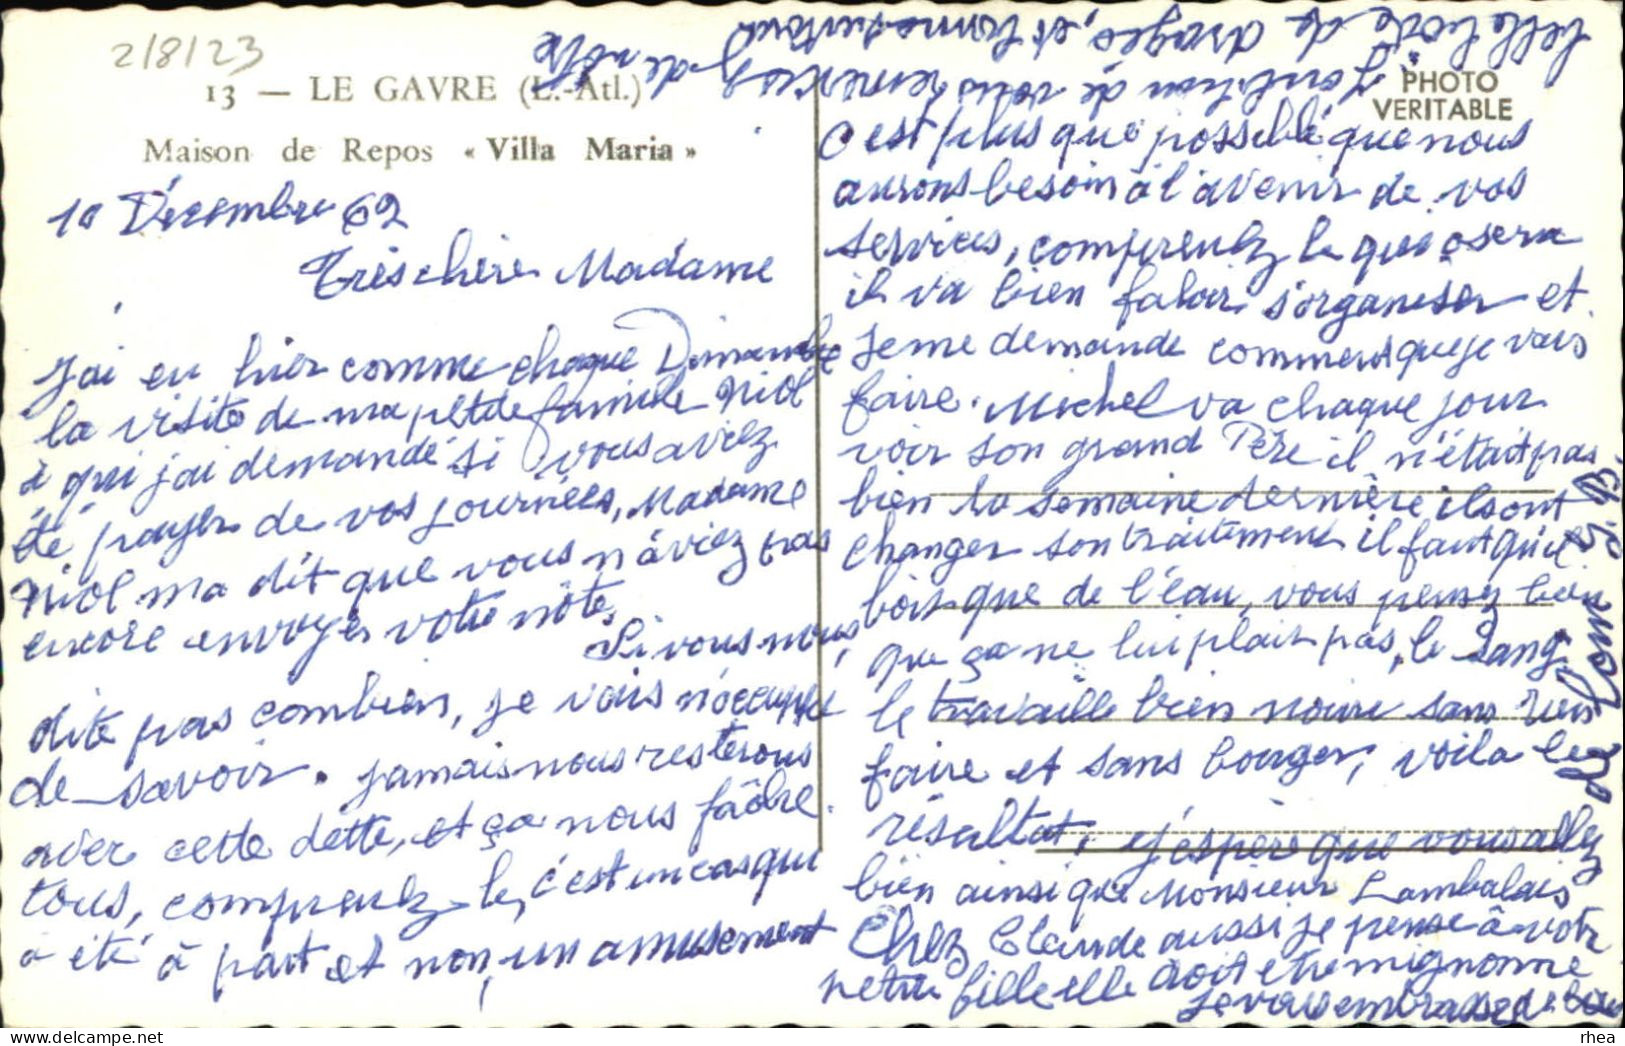 2/8/23
13 — LE GAVRE (L.-Atl.)
Maison de Repos « Villa Maria »
PHOTO
VERITABLE
10 Décembre 62
Très chère Madame
J'ai eu hier comme chaque Dimanche
la visite de ma petite famille Niol
à qui j'ai demandé si vous aviez
été payer de vos journées, Madame
Niol ma dit que vous n'aviez pas
encore envoyer votre nôte,
Si vous nous
dite pas combien, je vais m'occuper
de savoir. jamais nous resterons
avec cette dette, et ça nous fâche
tous, comprenez le, c'est un cas qui
a été à part et non, un amusement
C'est plus que possible que nous
aurons besoin à l'avenir de vos
services, comprenez le qui osera
il va bien faloir s'organiser et
Je me demande comment que je vais
faire. Michel va chaque jour
voir son grand Père il n'était pas
bien la semaine dernière ils ont
changer son traitement il faut qu'il
bois que de l'eau, vous pensez bien
que ça ne lui plait pas, le sang
le travaille bien noire sans rien
faire et sans bouger, voila le
résultat, j'espère que vous allez
bien ainsi que Monsieur Lambalais
Chez Claude aussi je pense à votre
petite fille elle doit etre mignonne
Je vous embrasse de
de loin
J'oubliais de vous remerciez de votre
belle boite de dragée, et bonne